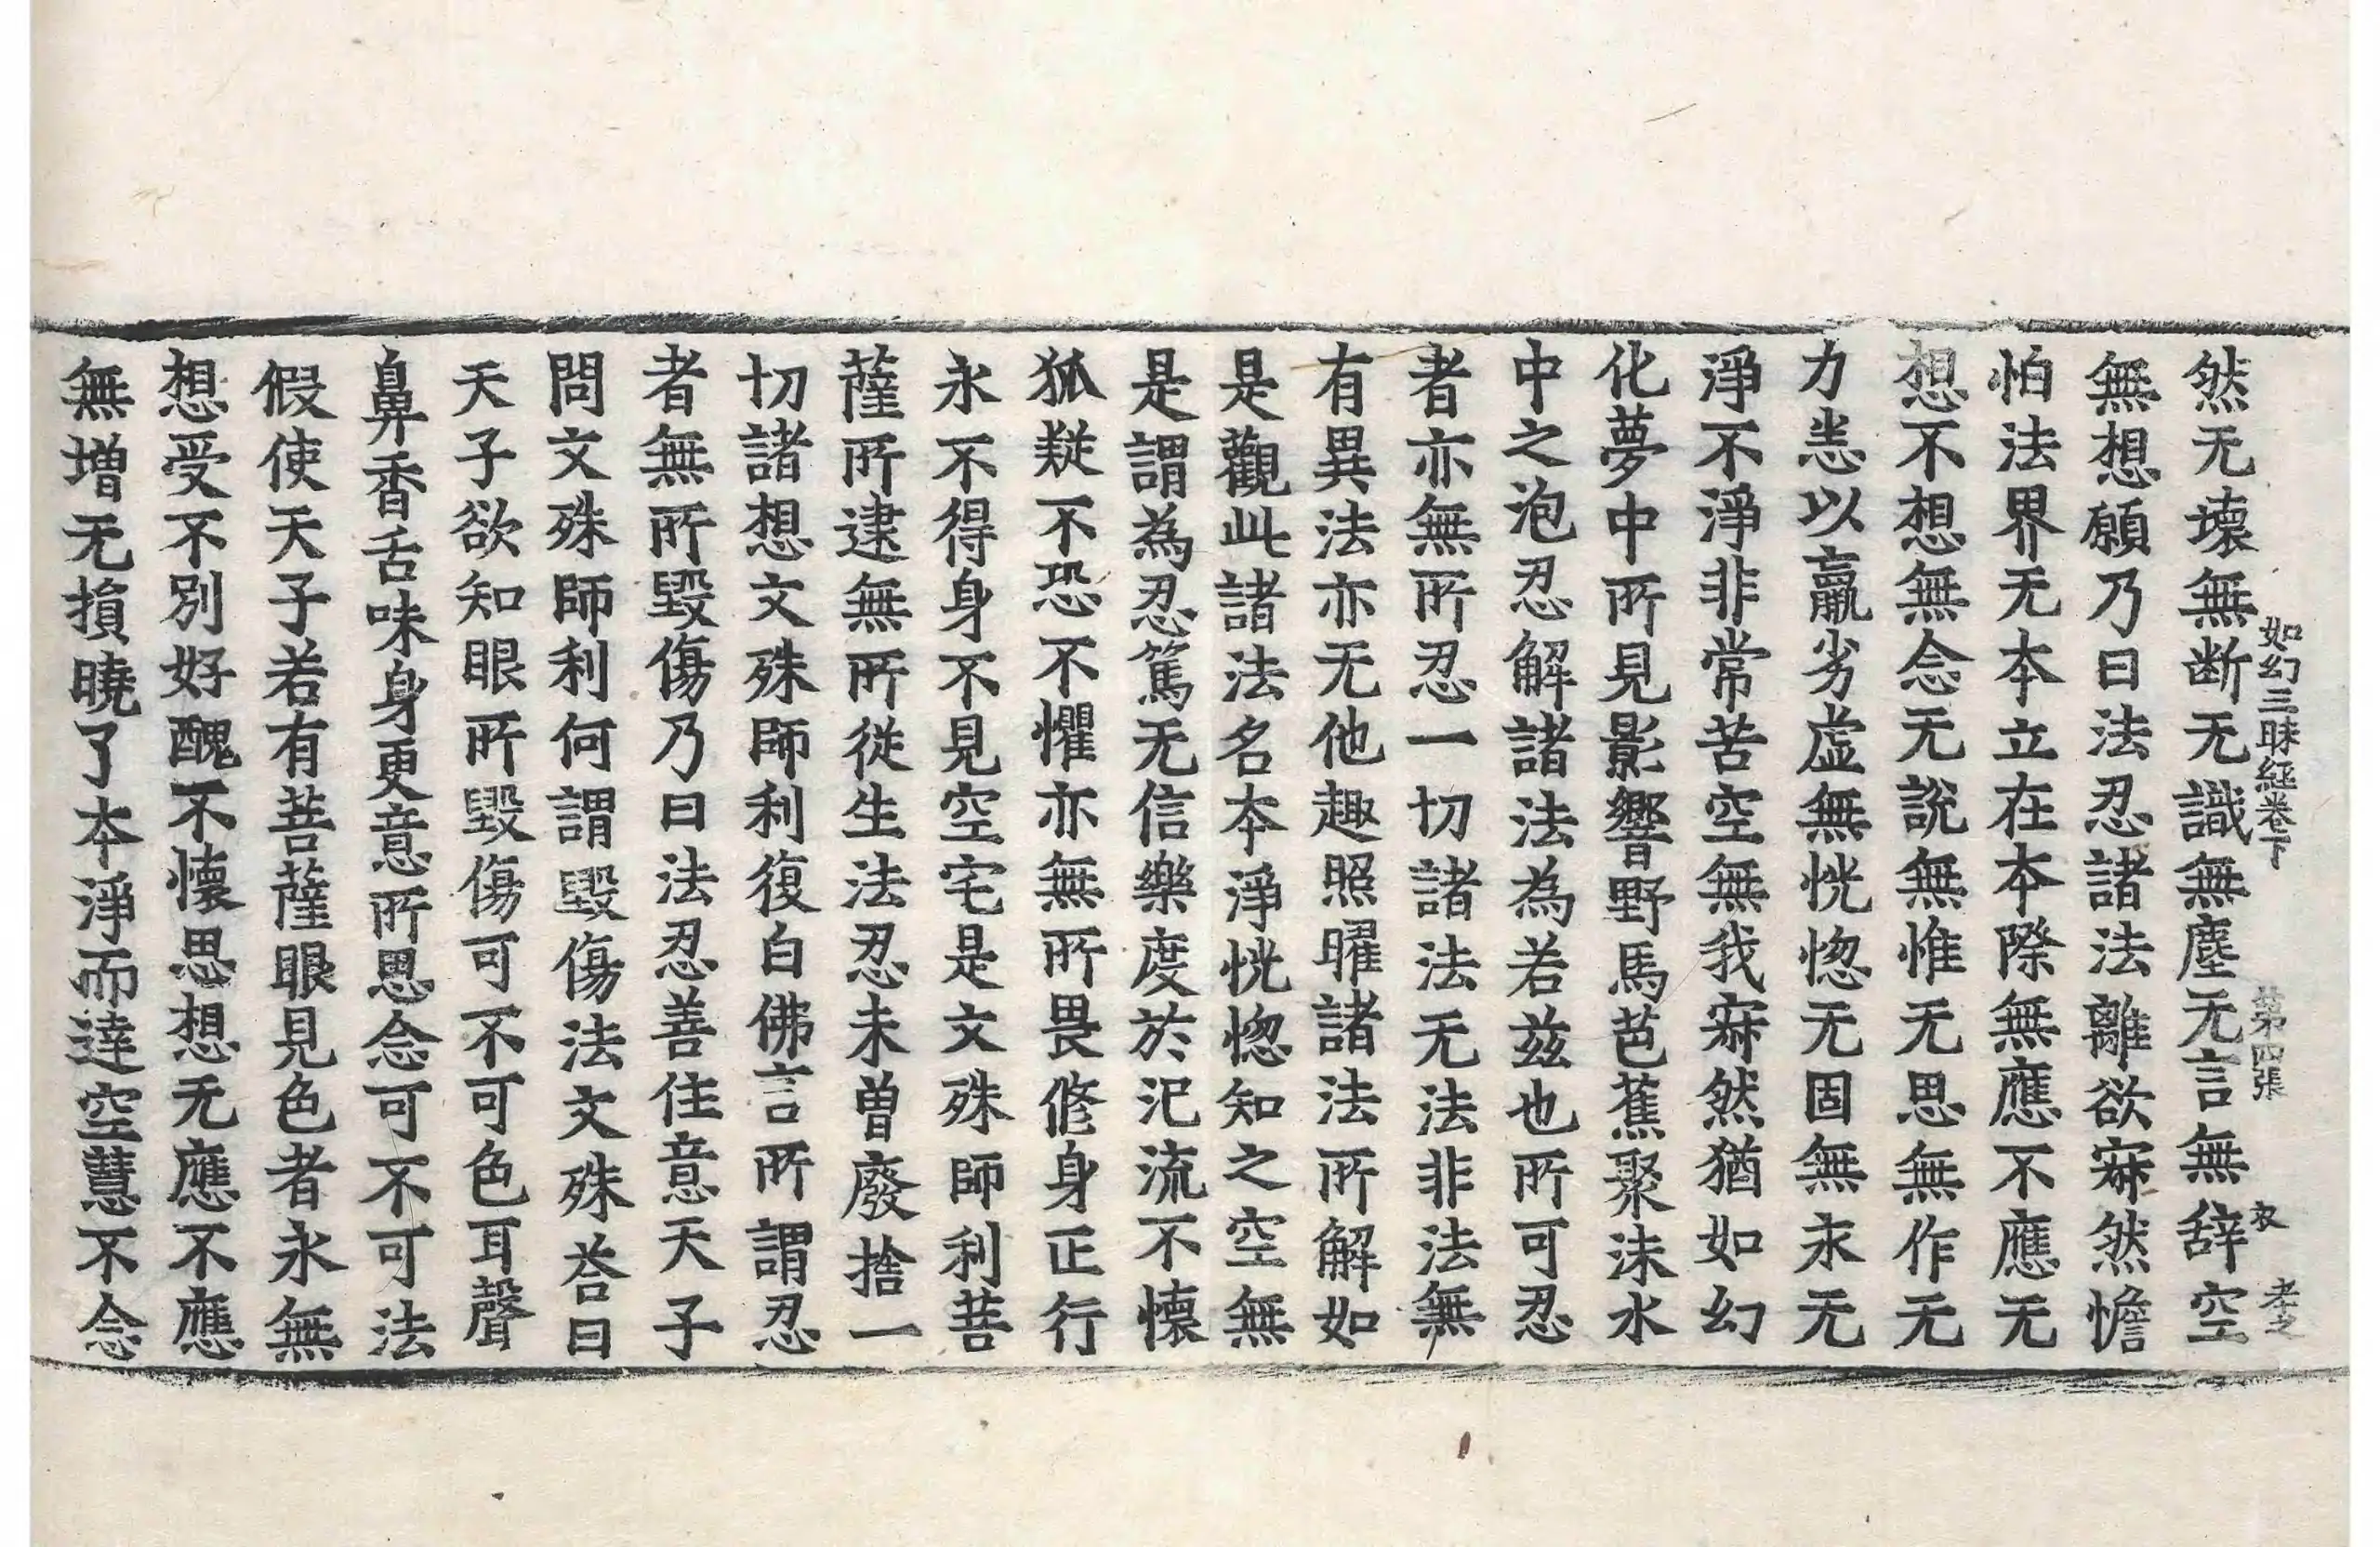 如幻三昧經卷下 第四張 衣
然无壞無断无識無塵无言無辞空
無想願乃曰法忍諸法離欲寂然憺
怕法界无本立在本際無應不應无
想不想無念无說無惟无思無作无
力恙以羸劣虛無恍惚无固無永无
淨不淨非常苦空無我寂然猶如幻
化夢中所見影響野馬芭蕉聚沫水
中之泡忍解諸法為若兹也所可忍
者亦無所忍一切諸法无法非法無
有異法亦无他趣照曜諸法所解如
是觀此諸法名本淨恍惚知之空無
是謂為忍篤无信樂度於汜流不懷
狐疑不恐不懼亦無所畏修身正行
永不得身不見空宅是文殊師利菩
薩所逮無所從生法忍未曽廢捨一
切諸想文殊師利復白佛言所謂忍
者無所毀傷乃曰法忍善住意天子
問文殊師利何謂毀傷法文殊荅曰
天子欲知眼所毀傷可不可色耳聲
鼻香舌味身更意所思念可不可法
假使天子若有菩薩眼見色者永無
想受不別好醜不懷思想无應不應
無增无損曉了本淨而達空慧不念